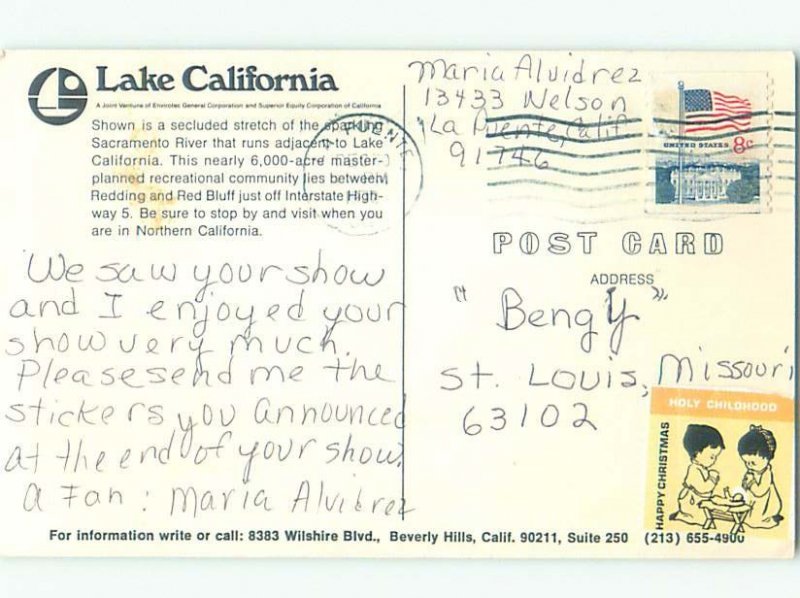 Lake California
A Joint Venture of Envirotec General Corporation and Superior Equity Corporation of California
Shown is a secluded stretch of the sparkling
Sacramento River that runs adjacent to Lake
California. This nearly 6,000-acre master-
planned recreational community lies between
Redding and Red Bluff just off Interstate High-
way 5. Be sure to stop by and visit when you
are in Northern California.
We saw your show
and I enjoyed your
show very much.
Please send me the
stickers you announced
at the end of your show.
a Fan: Maria Alvidrez
Maria Alvidrez
13433 Nelson
La Puente, Calif.
91746
PUENTE
UNITED STATES 8c
POST CARD
ADDRESS
"Bengy",
St. Louis, Missouri
63102
HOLY CHILDHOOD
HAPPY CHRISTMAS
For information write or call: 8383 Wilshire Blvd., Beverly Hills, Calif. 90211, Suite 250 (213) 655-4900